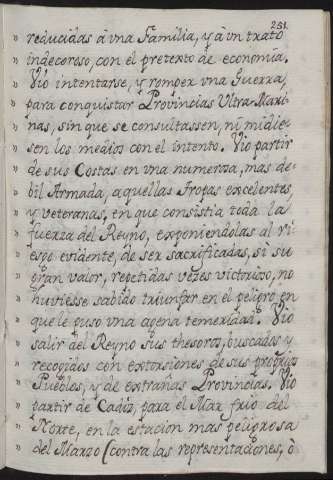 251.
" reducidas à vna Familia, y à vn trato
" indecoroso, con el pretexto de economia.
" Vio intentarse, y romper vna Guerra,
" para conquistar Provincias Ultra-Mari-
" nas, sin que se consultassen, ni midies-
" sen los medios con el intento. Vio partir
" de sus Costas en vna numerosa, mas de-
" bil Armada, aquellas Tropas excelentes,
" y veteranas, en que consistia toda la
" fuerza del Reyno, exponiendolas al ri-
" esgo evidente, de ser sacrificadas, si su
" gran valor, repetidas vezes victorioso, no
" huviesse sabido triunfar en el peligro, en
" que le puso vna agena temeridad. Vio
" salir del Reyno sus thesoros, buscados y
" recogidos con extorsiones de sus proprios
" Pueblos, y de extrañas Provincias. Vio
" partir de Cadiz, para el Mar frio del
" Norte, en la estacion mas peligrosa
" del Marzo (contra las representaciones, ò